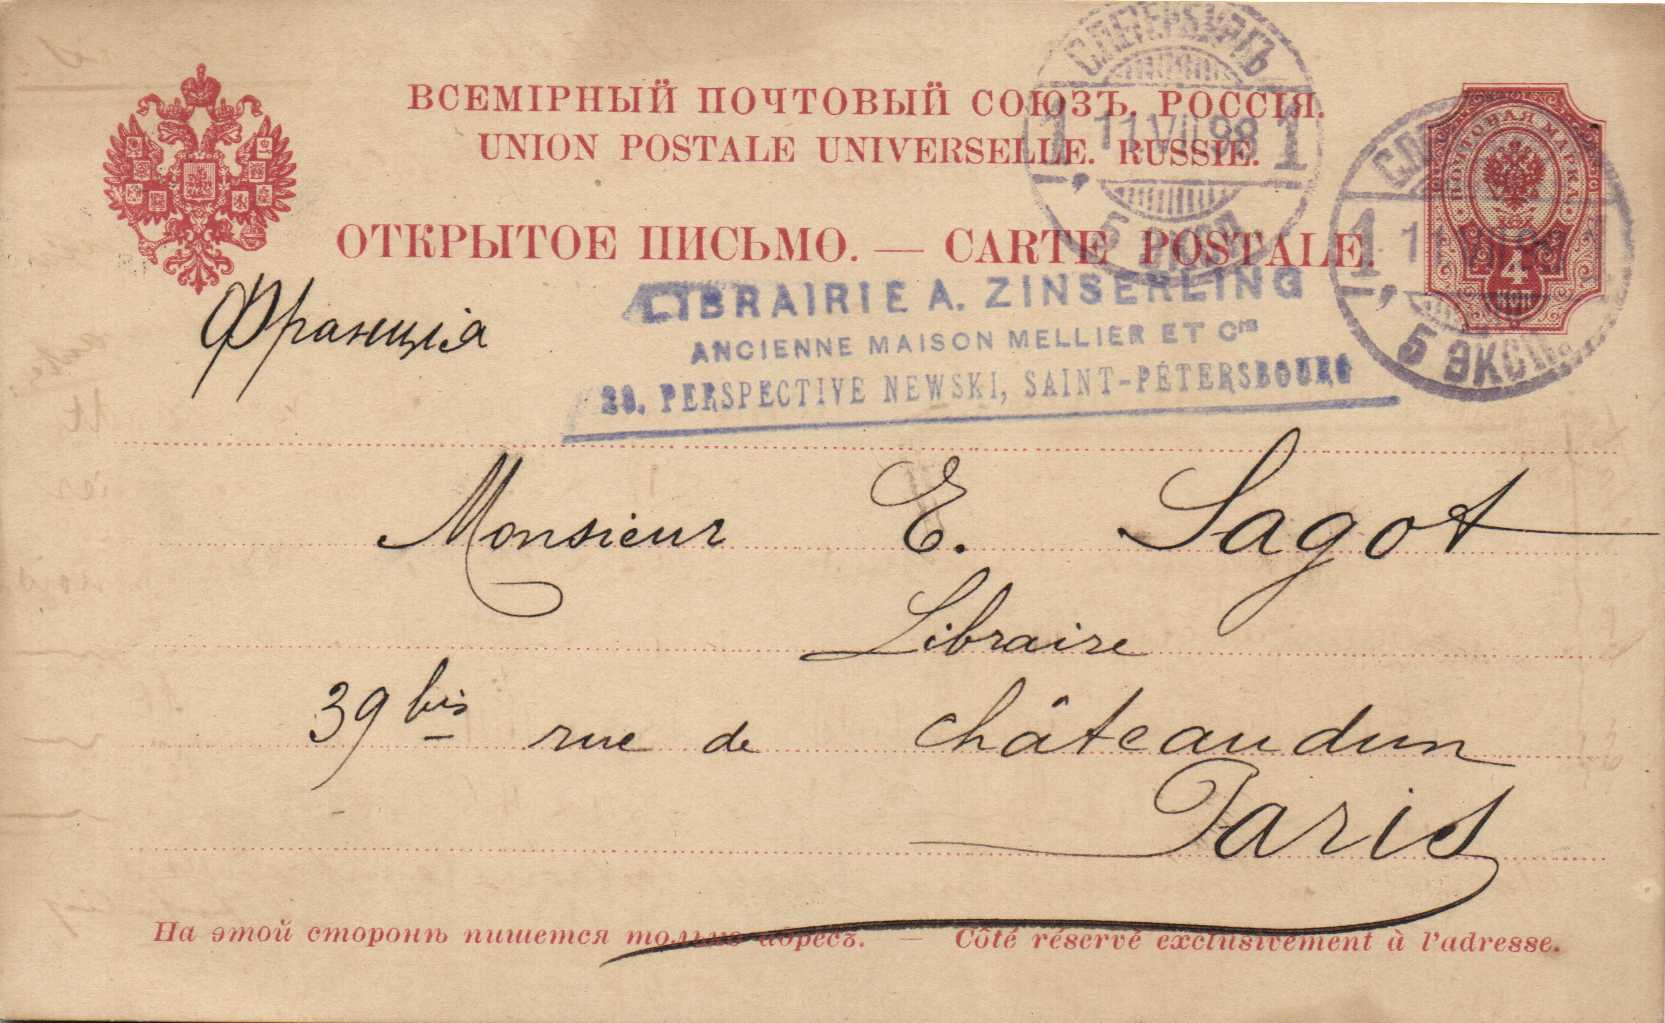 ВСЕМІРНЫЙ ПОЧТОВЫЙ СОЮЗЪ. РОССІЯ.
UNION POSTALE UNIVERSELLE. RUSSIE.
ОТКРЫТОЕ ПИСЬМО. — CARTE POSTALE.
С.ПЕТЕРБУРГЪ
1 11 VII 98 1
5
ПОЧТОВАЯ МАРКА
4
КОП
1 11
5 ЭКСП.
Франція
LIBRAIRIE A. ZINSERLING
ANCIENNE MAISON MELLIER ET Cie
20. PERSPECTIVE NEWSKI, SAINT-PÉTERSBOURG
Monsieur E. Sagot
Libraire
39 bis rue de châteaudun
Paris
На этой сторонѣ пишется только адресъ. — Côté réservé exclusivement à l'adresse.